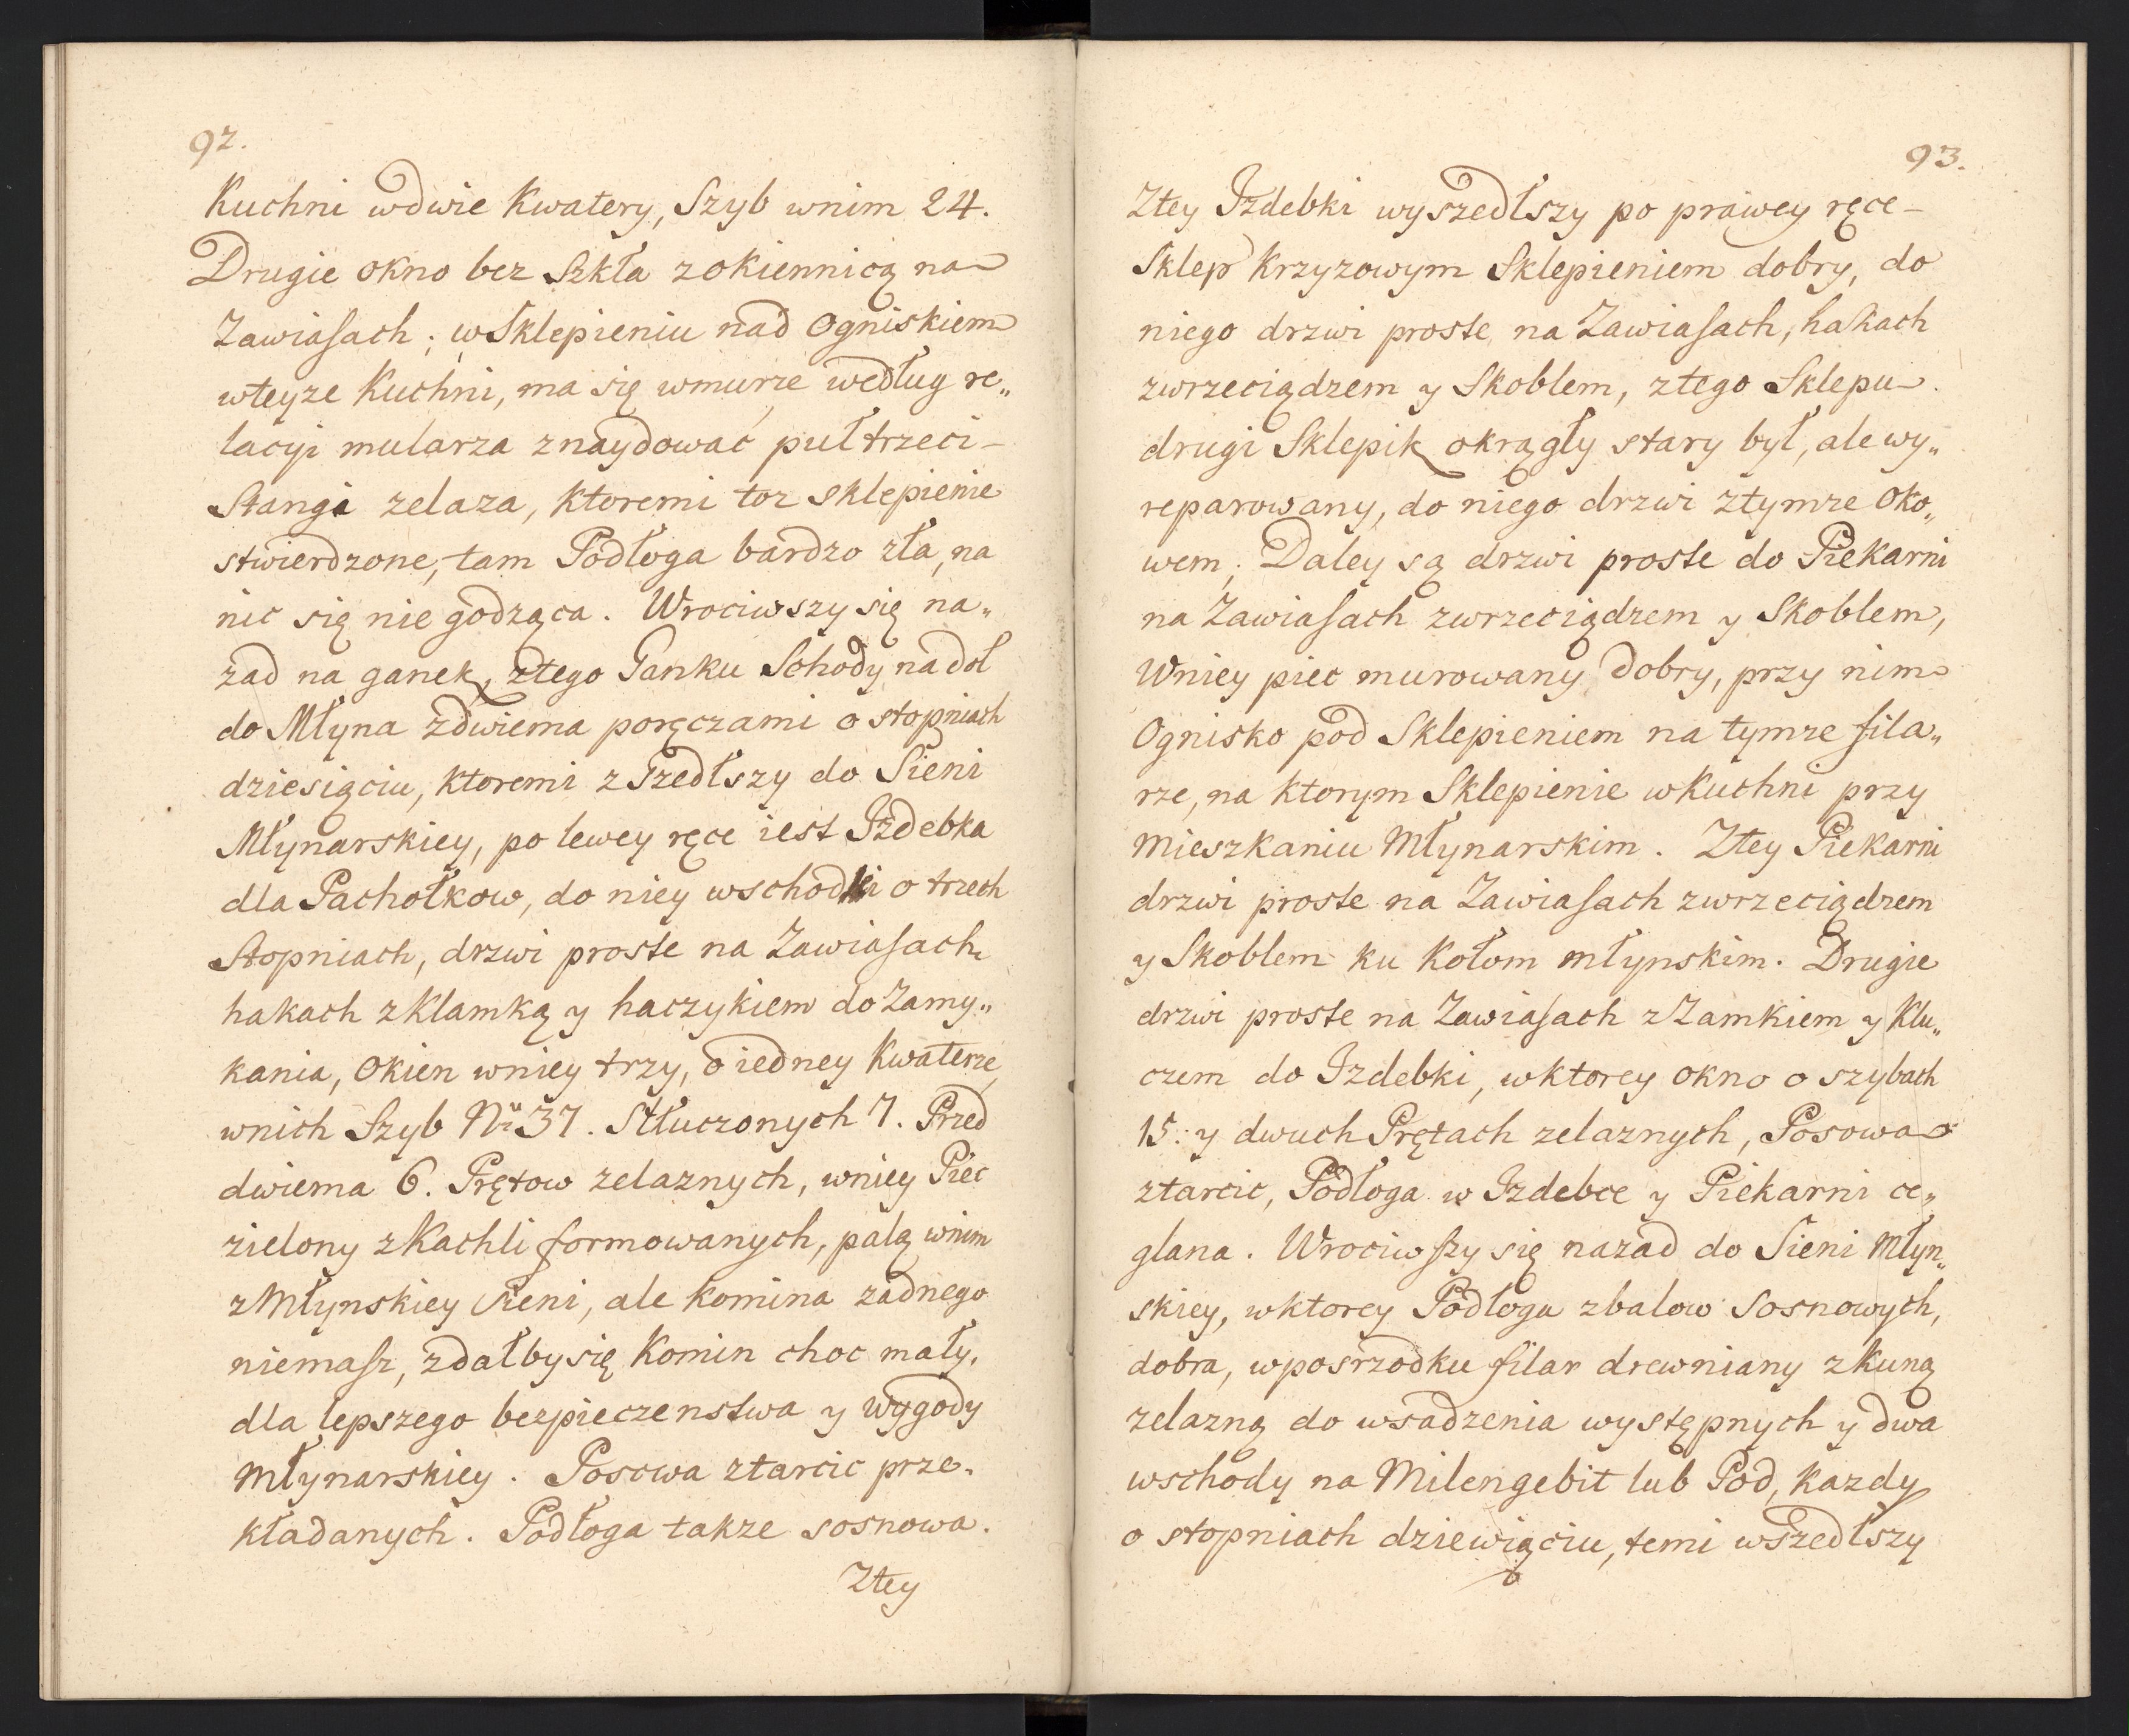 92.
Kuchni wdwie Kwatery, Szyb wnim 24.
Drugie okno bez Szkła zokiennicą na
Zawiasach; wSklepieniu nad Ogniskiem
wteyze Kuchni, ma się wmurze według re„
lacyi mularza znaydować puł trzeci-
Stangi zelaza, Ktoremi toz sklepienie
stwierdzone, tam Podłoga bardzo zła, na
nic się nie godząca. Wrociwszy się na„
zad na ganek, ztego Ganku Schody na doł
do Młyna zdwiema poręczami o stopniach
dziesiąciu, Ktoremi zszedłszy do Sieni
Młynarskiey, po lewey ręce iest Izdebka
dla Pachołkow, do niey wschodki o trzech
Stopniach, drzwi proste na Zawiasach
hakach zKlamką y haczykiem do Zamy„
kania, Okien wniey trzy, o iedney Kwaterze,
wnich Szyb Nr͂o 37. Stłuczonych 7. Przed
dwiema 6. Prętow zelaznych, wniey Piec
zielony zKachli formowanych, palą wnim
zMłynskiey Sieni, ale Komina zadnego
niemasz, zdałby się Komin choc mały,
dla lepszego bezpieczenstwa y wygody
Młynarskiey. Posowa ztarcic prze„
kładanych. Podłoga takze sosnowa.
Ztey
93.
Ztey Izdebki wyszedłszy po prawey ręce-
Sklep Krzyzowym Sklepieniem dobry, do
niego drzwi proste na Zawiasach, hakach
zwrzeciądzem y Skoblem, ztego Sklepu
drugi Sklepik okrągły stary był, ale wy„
reparowany, do niego drzwi ztymze Oko„
wem; Daley są drzwi proste do Piekarni
na Zawiasach zwrzeciądzem y Skoblem,
Wniey piec murowany dobry, przy nim
Ognisko pod Sklepieniem na tymze fila„
rze, na Ktorym Sklepienie wKuchni przy
Mieszkaniu Młynarskim. Ztey Piekarni
drzwi proste na Zawiasach zwrzeciądzem
y Skoblem ku Kołom młynskim. Drugie
drzwi proste na Zawiasach zZamkiem y Klu„
czem do Izdebki, wktorey okno o szybach
15. y dwuch Prętach zelaznych, Posowa
ztarcic, Podłoga w Izdebce y Piekarni ce„
glana. Wrociwszy się nazad do Sieni Młyn„
skiey, wktorey Podłoga zbalow Sosnowych,
dobra, wposrzodku filar drewniany zKuną
zelazną do wsadzenia występnych y dwa
wschody na Milengebit lub Pod, Kazdy
o stopniach dziewiąciu, temi wszedłszy